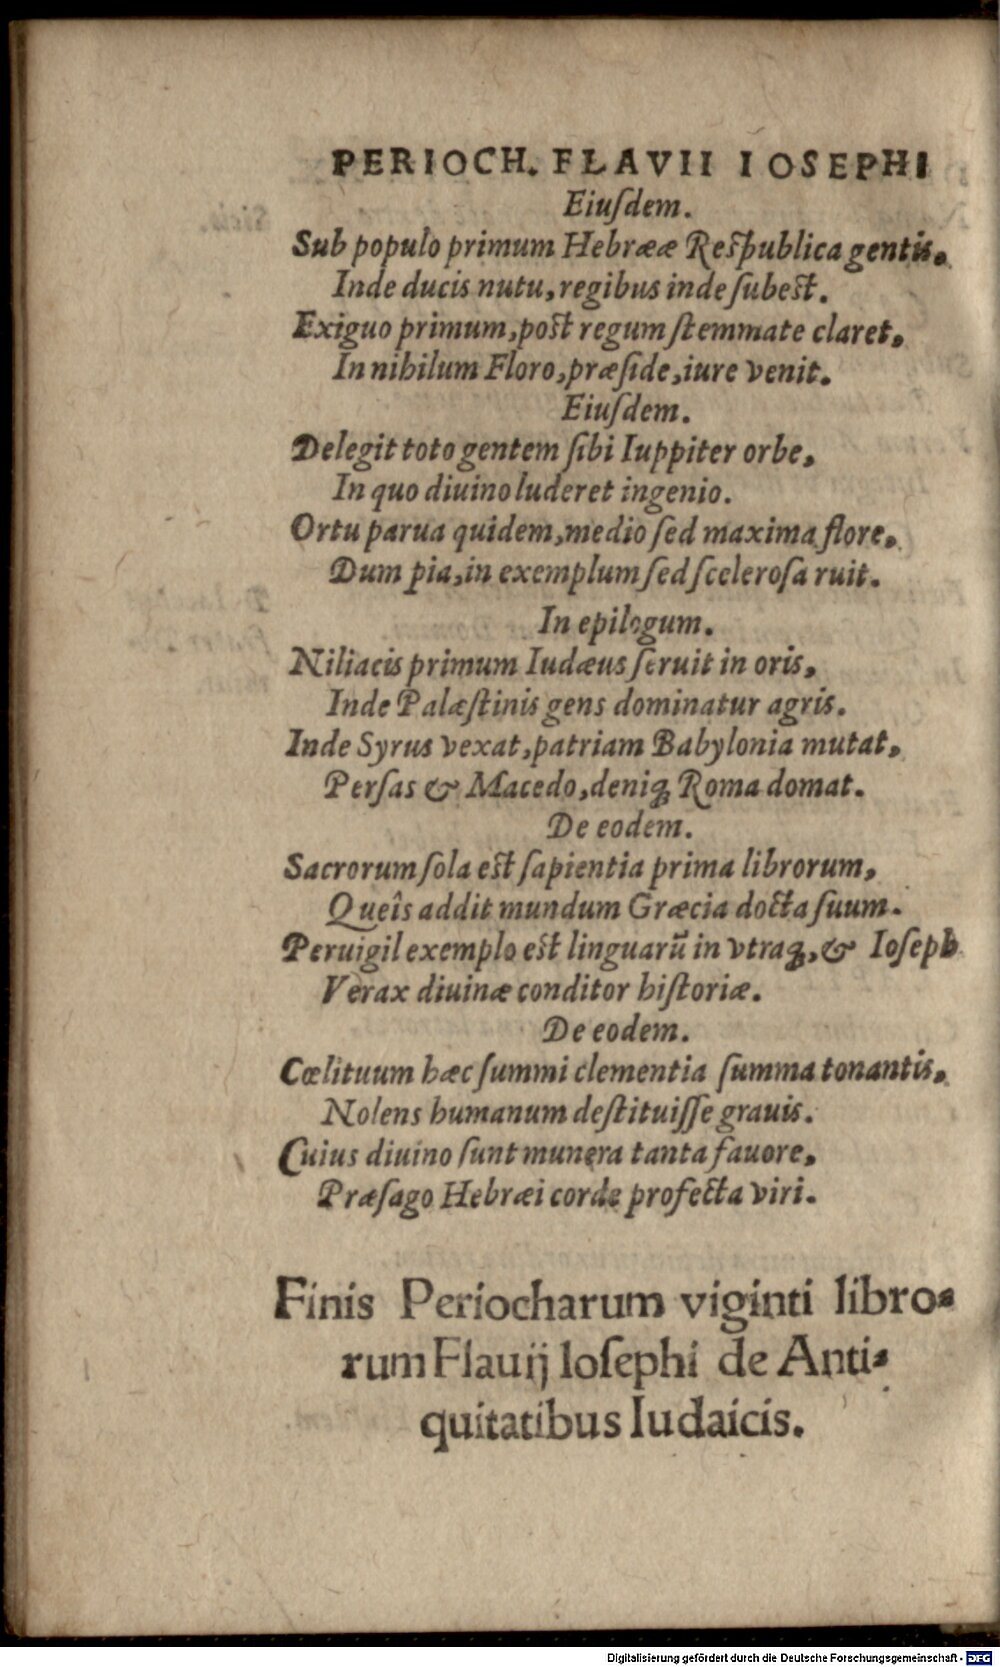 PERIOCH. FLAVII IOSEPHI
Eiuſdem.
Sub populo primum Hebrææ Reſpublica gentis,
Inde ducis nutu, regibus inde ſubeſt.
Exiguo primum, poſt regum ſtemmate claret,
In nihilum Floro, præſide, iure venit.
Eiuſdem.
Delegit toto gentem ſibi Iuppiter orbe,
In quo diuino luderet ingenio.
Ortu parua quidem, medio ſed maxima flore,
Dum pia, in exemplum ſed ſceleroſa ruit.
In epilogum.
Niliacis primum Iudæus ſeruit in oris,
Inde Palæſtinis gens dominatur agris.
Inde Syrus vexat, patriam Babylonia mutat,
Perſas & Macedo, deniqꝫ Roma domat.
De eodem.
Sacrorum ſola eſt ſapientia prima librorum,
Queîs addit mundum Græcia docta ſuum.
Peruigil exemplo eſt linguarū in vtraqꝫ, & Ioſeph
Verax diuinæ conditor hiſtoriæ.
De eodem.
Cœlituum hæc ſummi clementia ſumma tonantis,
Nolens humanum deſtituiſſe grauis.
Cuius diuino ſunt munera tanta fauore,
Præſago Hebræi corde profecta viri.
Finis Periocharum viginti libro-
rum Flauij Ioſephi de Anti-
quitatibus Iudaicis.
Digitalisierung gefördert durch die Deutsche Forschungsgemeinschaft - DFG